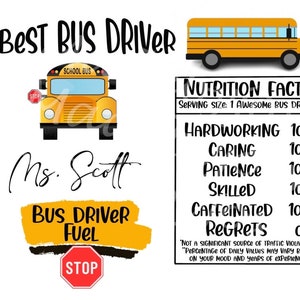 Best Bus Driver
SCHOOL BUS
STOP
Ms. Scott
Bus Driver
Fuel
STOP
Nutrition Fact
Serving Size: 1 Awesome Bus Dr
Hardworking 10
Caring 10
Patience 10
Skilled 10
Caffeinated 10
Regrets 0
*Not a significant source of traffic viola
*Percentage of daily values may vary b
on your mood and years of experien